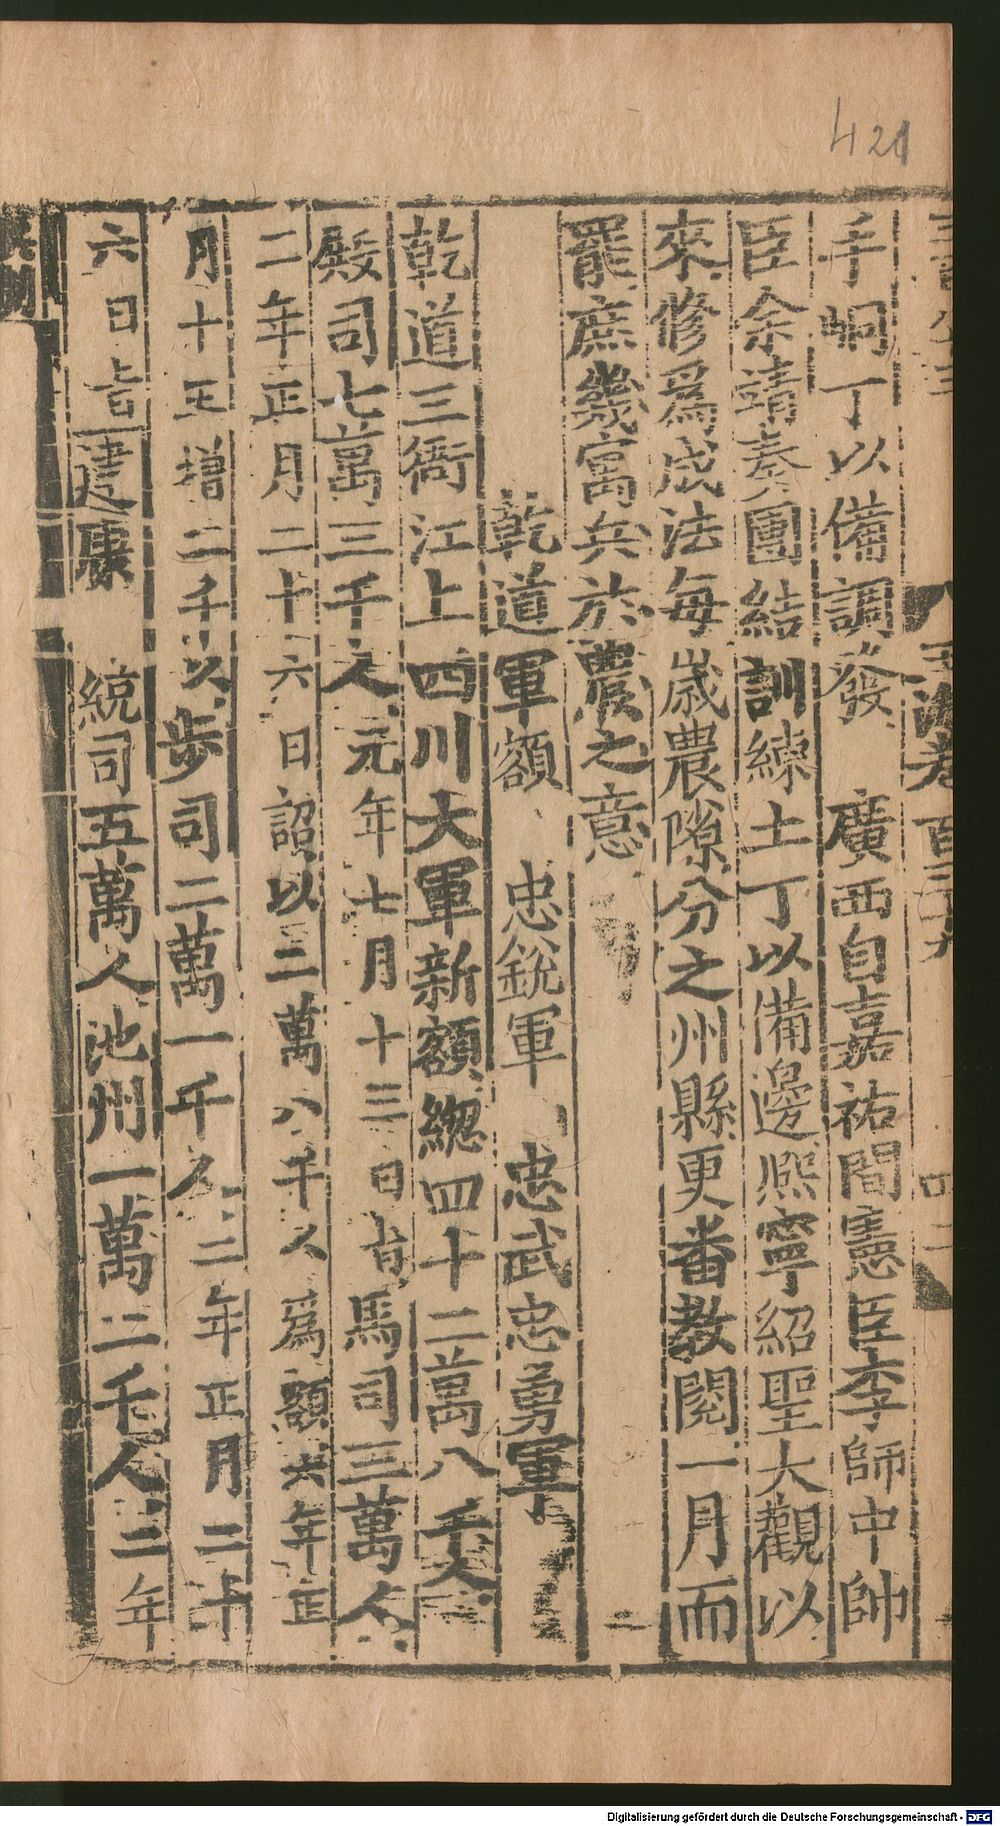 421
玉海卷百三十九
手峒丁以備調發 廣西自嘉祐間憲臣李師中帥
臣余靖奏團結訓練土丁以備邊熈寧紹聖大觀以
來修爲成法每歲農隙分之州縣更番教閱一月而
罷庶幾寓兵於農之意
乾道軍額 忠銳軍 忠武忠勇軍
乾道三衙江上四川大軍新額緫四十二萬八千人
殿司七萬三千人元年七月十三日㫖馬司三萬人
二年正月二十六日詔以二萬八千人爲額六年正
月十五增二千人步司二萬一千人二年正月二十
六日㫖建康 統司五萬人池州一萬二千人二年
Digitalisierung gefördert durch die Deutsche Forschungsgemeinschaft - DFG